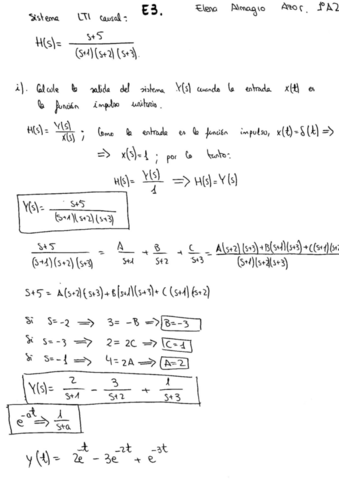 Sistema LTI causal: E3. Elena Almagro Azor. 1ºA2
H(s) = s+5 / (s+1)(s+2)(s+3).
i). Calcule la salida del sistema Y(s) cuando la entrada x(t) es
la función impulso unitario.
H(s) = Y(s) / X(s) ; Como la entrada es la función impulso, x(t) = δ(t) ⇒
⇒ x(s) = 1 ; por lo tanto:
H(s) = Y(s) / 1 ⇒ H(s) = Y(s)
Y(s) = s+5 / (s+1)(s+2)(s+3)
s+5 / (s+1)(s+2)(s+3) = A / s+1 + B / s+2 + C / s+3 = A(s+2)(s+3)+B(s+1)(s+3)+C(s+1)(s+2) / (s+1)(s+2)(s+3)
s+5 = A(s+2)(s+3)+B(s+1)(s+3)+C(s+1)(s+2)
Si s=-2 ⇒ 3 = -B ⇒ B=-3
Si s=-3 ⇒ 2 = 2C ⇒ C=1
Si s=-1 ⇒ 4 = 2A ⇒ A=2
Y(s) = 2 / s+1 - 3 / s+2 + 1 / s+3
e^-at ⇒ 1 / s+a
y(t) = 2e^-t - 3e^-2t + e^-3t